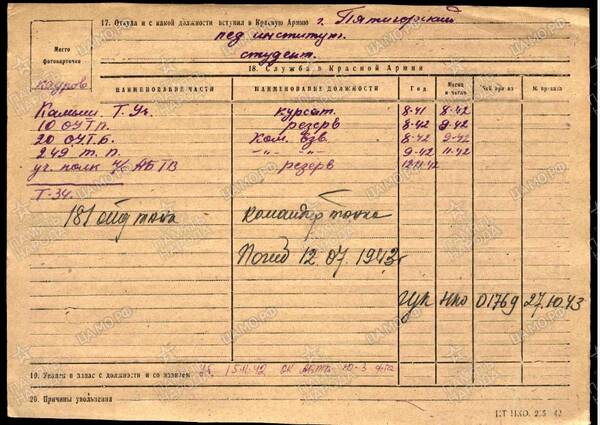 17. Откуда и с какой должности вступил в Красную Армию г. Пятигорский
пед институт.
студент.
Место
фотокарточки
кадров
18. Служба в Красной Армии
НАИМЕНОВАНИЕ ЧАСТИ НАИМЕНОВАНИЕ ДОЛЖНОСТИ Год Месяц и число Чей приказ № приказа
Камыш. Т. Уч. курсат. 8-41 8-42
10 ОУТП. резерв 8-42 9-42
20 ОУТБ. Ком. взв. 8-42 9-42
249 т. п. -"- -"- 9-42 11-42
уч. полк АБТВ резерв 12.11.42
Т-34.
181 командир танка
Погиб 12.07.1943г
ГУК НКО 01769 27.10.43
19. Уволен в запас с должности и со званием 15.11.42 ОК
20. Причины увольнения
ЦАМО.РФ